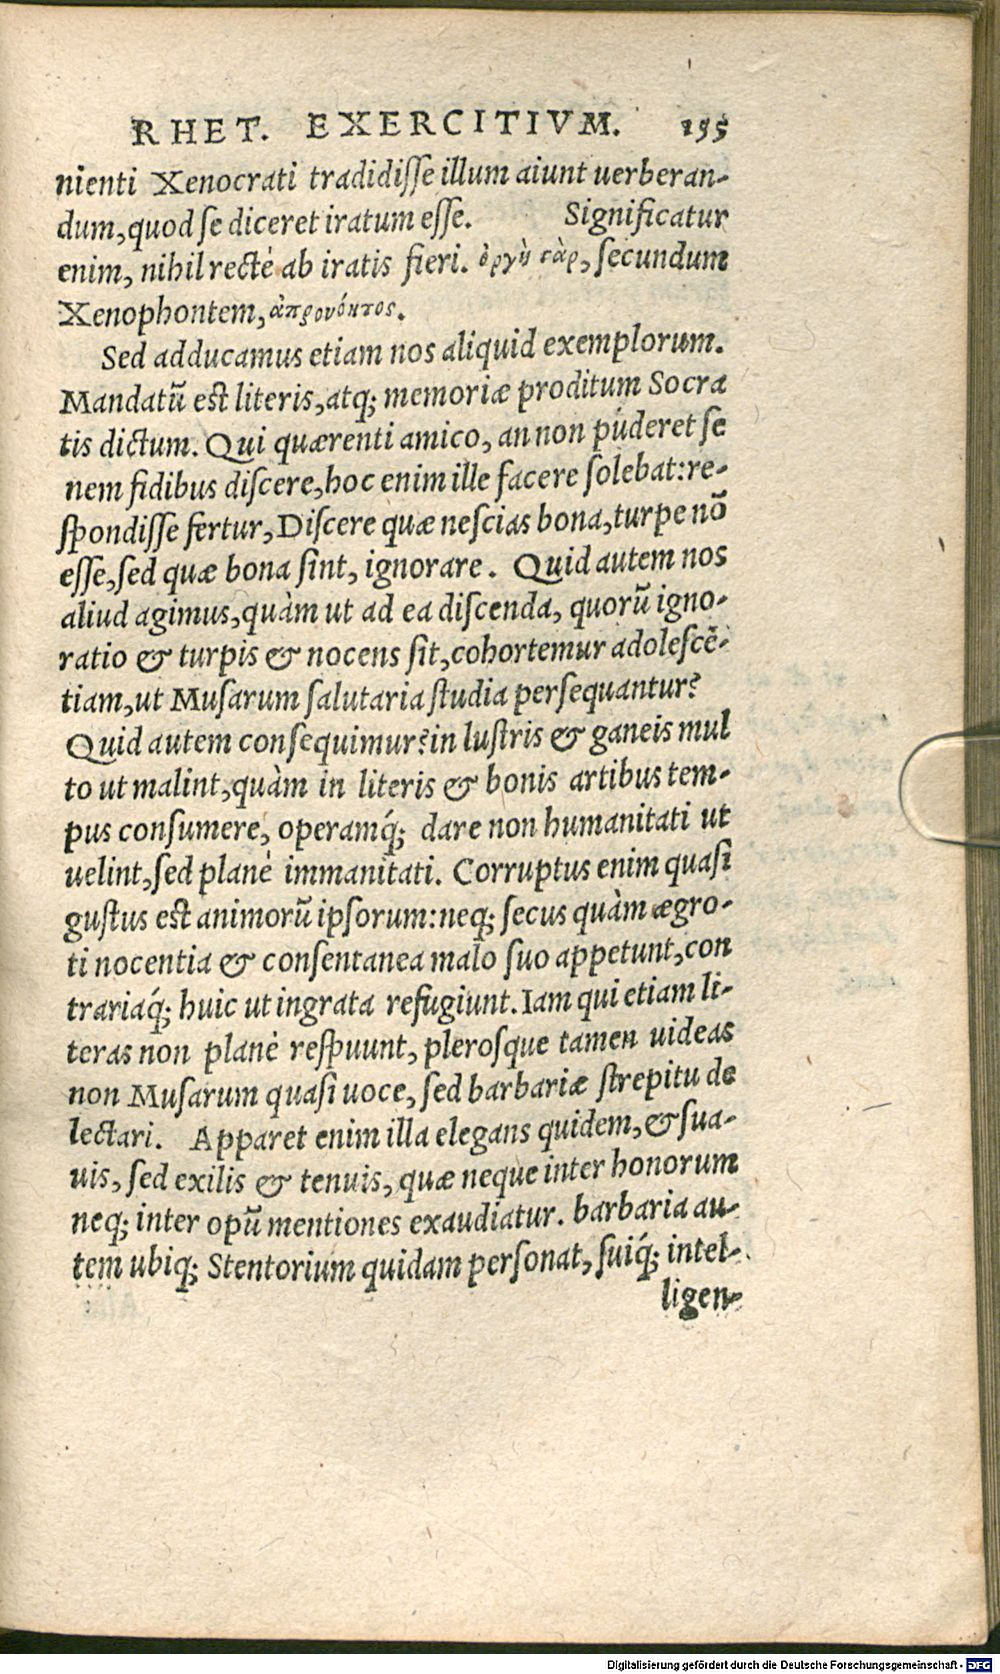 RHET. EXERCITIVM. 155
nienti Xenocrati tradidiſſe illum aiunt uerberan-
dum, quod ſe diceret iratum eſſe. Significatur
enim, nihil rectè ab iratis fieri. ὀργὴ γὰρ, ſecundum
Xenophontem, ἀπρονόητος.
Sed adducamus etiam nos aliquid exemplorum.
Mandatũ eſt literis, atq; memoriæ proditum Socra
tis dictum. Qui quærenti amico, an non púderet ſe
nem fidibus diſcere, hoc enim ille facere ſolebat: re-
ſpondiſſe fertur, Diſcere quæ neſcias bona, turpe nõ
eſſe, ſed quæ bona ſint, ignorare. Quid autem nos
aliud agimus, quàm ut ad ea diſcenda, quorũ igno-
ratio & turpis & nocens ſit, cohortemur adoleſcẽ-
tiam, ut Muſarum ſalutaria ſtudia perſequantur?
Quid autem conſequimur? in luſtris & ganeis mul
to ut malint, quàm in literis & bonis artibus tem-
pus conſumere, operamq́; dare non humanitati ut
uelint, ſed planè immanitati. Corruptus enim quaſi
guſtus eſt animorũ ipſorum: neq; ſecus quàm ægro-
ti nocentia & conſentanea malo ſuo appetunt, con
trariaq́; huic ut ingrata refugiunt. Iam qui etiam li-
teras non planè reſpuunt, pleroſque tamen uideas
non Muſarum quaſi uoce, ſed barbariæ ſtrepitu de
lectari. Apparet enim illa elegans quidem, & ſua-
uis, ſed exilis & tenuis, quæ neque inter honorum
neq; inter opũ mentiones exaudiatur. barbaria au-
tem ubiq; Stentorium quidam perſonat, ſuiq́; intel-
ligen-
Digitalisierung gefördert durch die Deutsche Forschungsgemeinschaft - DFG